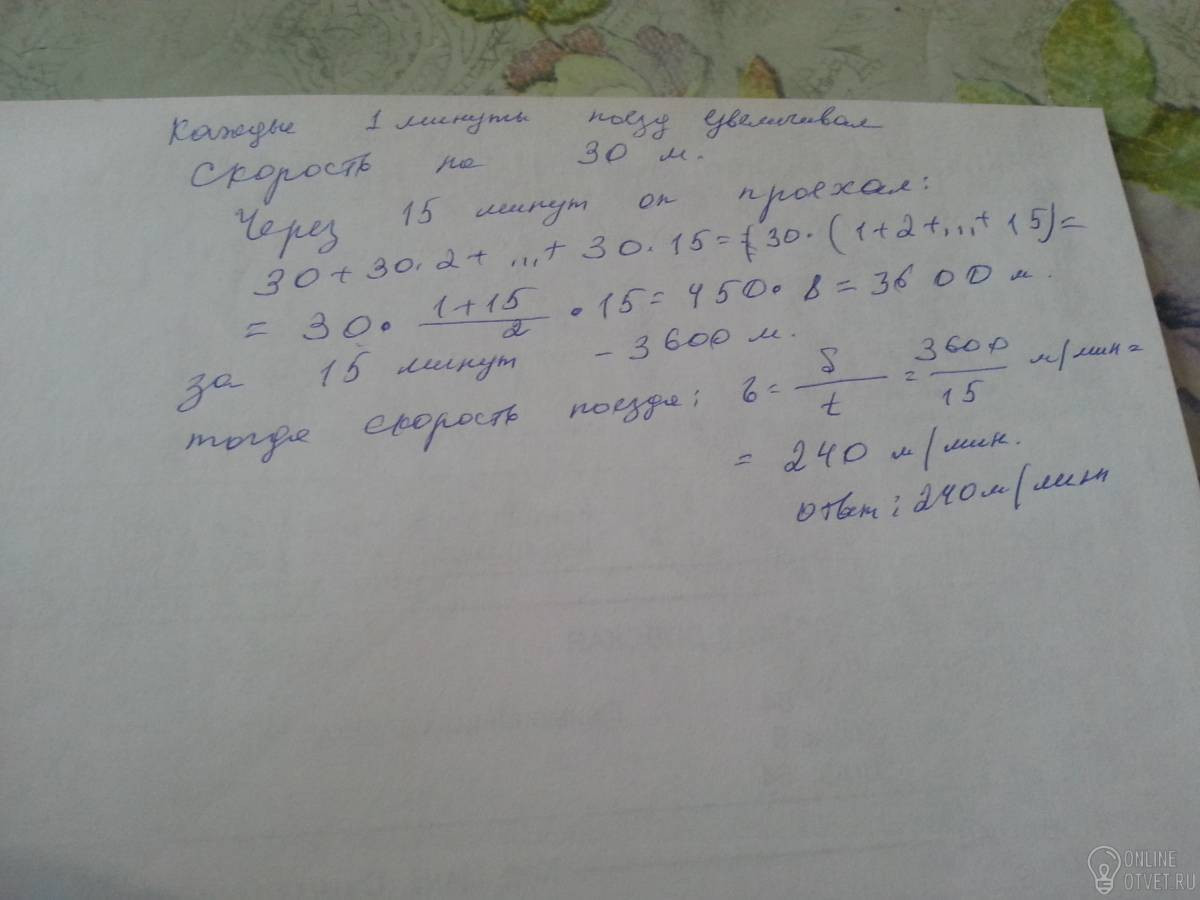 Каждые 1 минуты поезд увеличивал
скорость на 30 м.
Через 15 минут он проехал:
30 + 30·2 + ... + 30·15 = 30·(1+2+...+15) =
= 30 · (1+15)/2 · 15 = 450 · 8 = 3600 м.
за 15 минут – 3600 м.
тогда скорость поезда: v = S/t = 3600/15 м/мин =
= 240 м/мин.
ответ: 240 м/мин
ONLINE
OTVET.RU